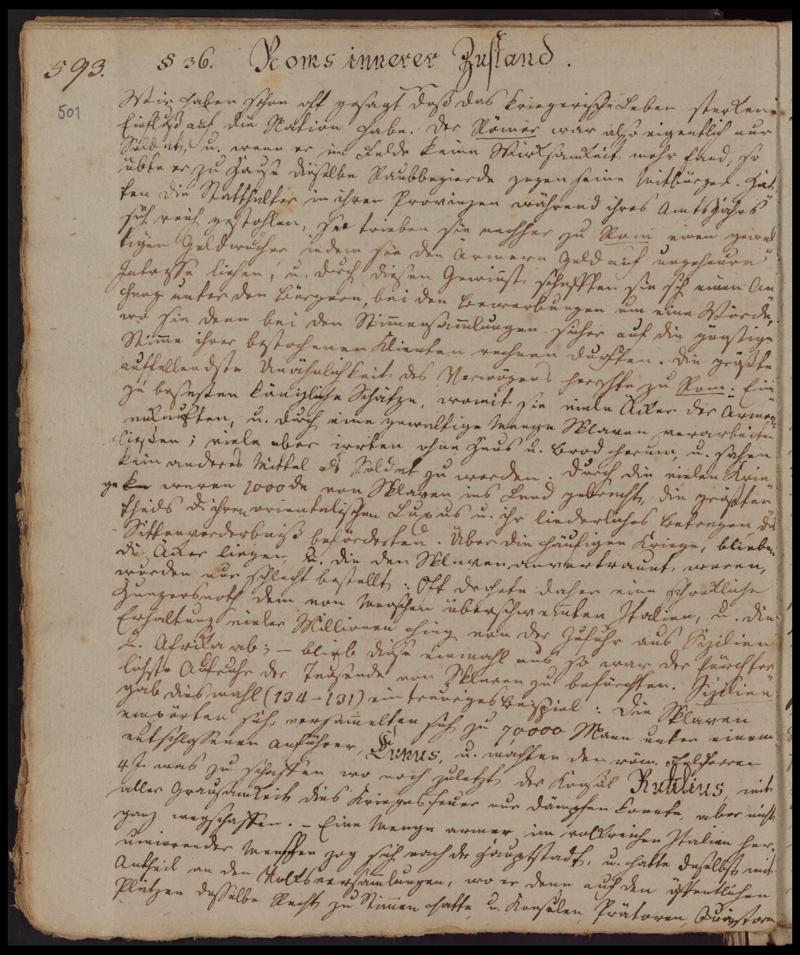 593. § 36. Roms innerer Zustand.
501
Wir haben schon oft gesagt daß das kriegerische Leben starken
Einfluß auf die Nation habe. Der Römer war also eigentlich nur
Soldat, u. wenn er im Felde keine Wirksamkeit mehr fand, so
übte er zu Hause dieselbe Raubbegierde gegen seine Mitbürger. Hat-
ten die Statthalter in ihren Provinzen während ihres Amtsjahrs
sich reich gestohlen, so trieben sie nachher zu Rom einen gewal-
tigen Geldwucher indem sie den Ärmern Geld auf ungeheure
Interesse liehen, u. durch diesen Gewinst schafften sie sich einen An-
hang unter den Bürgern, bei den Bewerbungen um eine Würde,
wo sie denn bei den Stimmensammlungen sicher auf die günstige
Stimme ihrer bestochenen Klienten rechnen durften. Die größte
auffallendste Unähnlichkeit des Vermögens herschte zu Rom. Ein-
ge besaßen königliche Schätze, womit sie viele Äcker der Armen
ankauften, u. durch eine gewaltige Menge Sklaven verarbeiten
ließen; viele aber irrten ohne Haus u. Brod herum, u. sahen
kein anderes Mittel als Soldat zu werden. Durch die vielen Krie-
ge waren 1000de von Sklaven ins Land gebracht, die größten
theils d. ihren orientalischen Luxus u. ihr liederliches Betragen die
Sittenverderbniß beförderten. Über die häufigen Kriege, blieben
die Äcker liegen, u. die den Sklaven anvertraut waren,
wurden nur schlecht bestellt: Oft drohete daher eine schreckliche
Hungersnoth dem von Menschen überschwemten Italien, u. die
Erhaltung vieler Millionen hing von der Zufuhr aus Sizilien
u. Afrika ab; – blieb diese einmahl aus, so war der fürchter-
lichste Aufruhr der Tausende von Sklaven zu befürchten. Sizilien
gab diesmahl (134–131) ein trauriges Beispiel: Die Sklaven
empörten sich, versammelten sich zu 70000 Mann unter einem
entschlossenen Anführer, Eunus, u. machten den röm. Feldherren
was zu schaffen wo noch zuletzt der Konsul Rutilius, mit
aller Grausamkeit dies Kriegesfeuer nur dämpfen konnte, aber nicht
ganz wegschaffen. – Eine Menge armer, im volkreichen Italien her-
umirrender Menschen zog sich nach der Hauptstadt, u. hatte daselbst mit
Antheil an den Volksversammlungen, wo er denn auf den öffentlichen
Plätzen dasselbe Recht zu Stimmen hatte, u. Konsulen, Prätoren, Quästoren